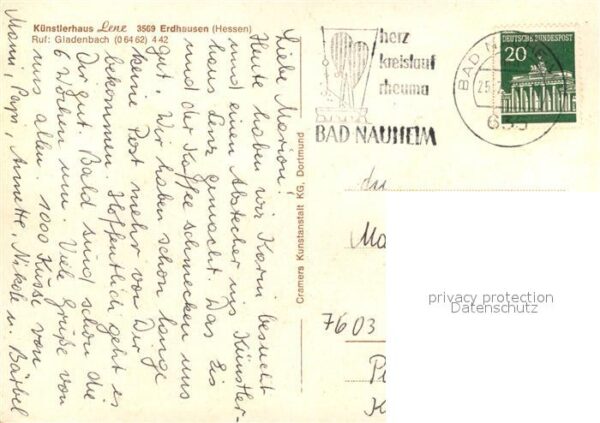 Künstlerhaus Lenz 3569 Erdhausen (Hessen)
Ruf: Gladenbach (0 64 62) 4 42
Liebe Marion!
Heute haben wir Karin besucht
und einen Abstecher ins Künstler-
haus Lenz gemacht. Das Eis
und der Kaffee schmecken uns
gut. Wir haben schon lange
keine Post mehr von Dir
bekommen. Hoffentlich geht es
Dir gut. Bald sind schon die
6 Wochen um. Viele Grüße von
uns allen 1000 Küsse von
Mami, Papi, Annette, Nikole u. Bärbel
Cramers Kunstanstalt KG, Dortmund
herz
kreislauf
rheuma
BAD NAUHEIM
DEUTSCHE BUNDESPOST
20
BAD N
635
Ma
7603
privacy protection
Datenschutz